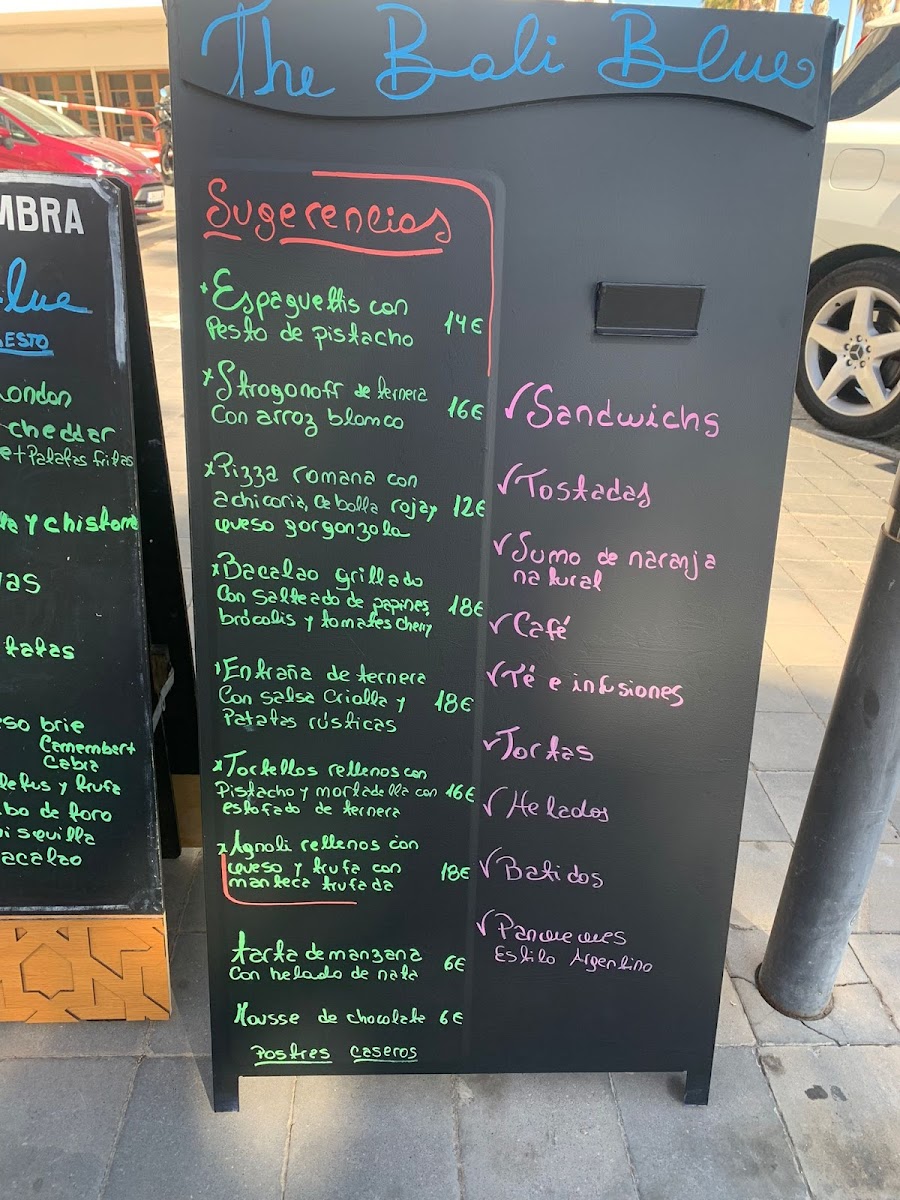 The Bali Blue
Sugerencias
Espaguettis con
Pesto de pistacho 14€
Strogonoff de ternera
Con arroz blanco 16€
Pizza romana con
achicoria, Cebolla roja y 12€
queso gorgonzola
Bacalao grillado
Con Salteado de papines, 18€
brócolis y tomates cherry
Entraña de ternera
Con salsa Criolla y 18€
Patatas rústicas
Tortellos rellenos con
Pistacho y mortadella con 16€
estofado de ternera
Agnoli rellenos con
queso y trufa con 18€
manteca trufada
tarta de manzana
Con helado de nata 6€
Mousse de chocolate 6€
Postres caseros
Sandwichs
Tostadas
Sumo de naranja
natural
Café
Té e infusiones
Tortas
Helados
Batidos
Panqueques
Estilo Argentino
MBRA
lue
ESTO
London
cheddar
e + Patatas fritas
y chistorra
tatas
so brie
Camembert
Cabra
letus y trufa
bo de toro
quisquilla
acalao